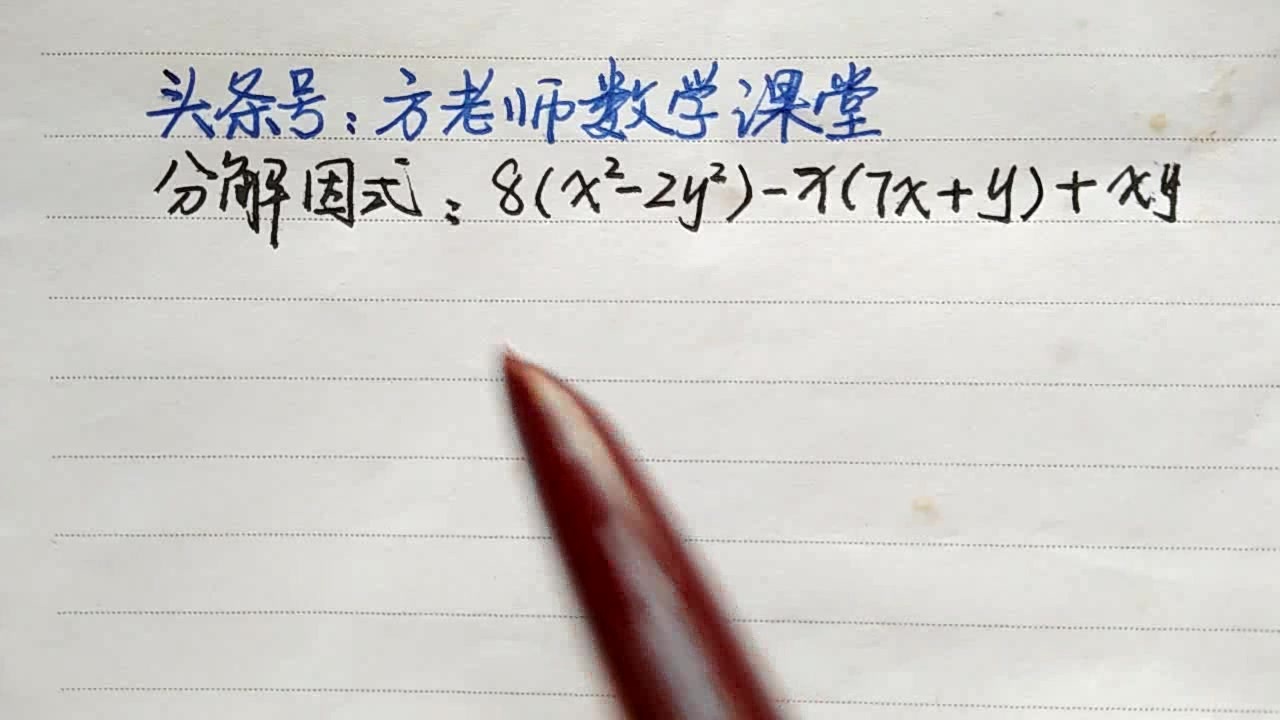 头条号：方老师数学课堂
分解因式：8(x²-2y²)-x(7x+y)+xy